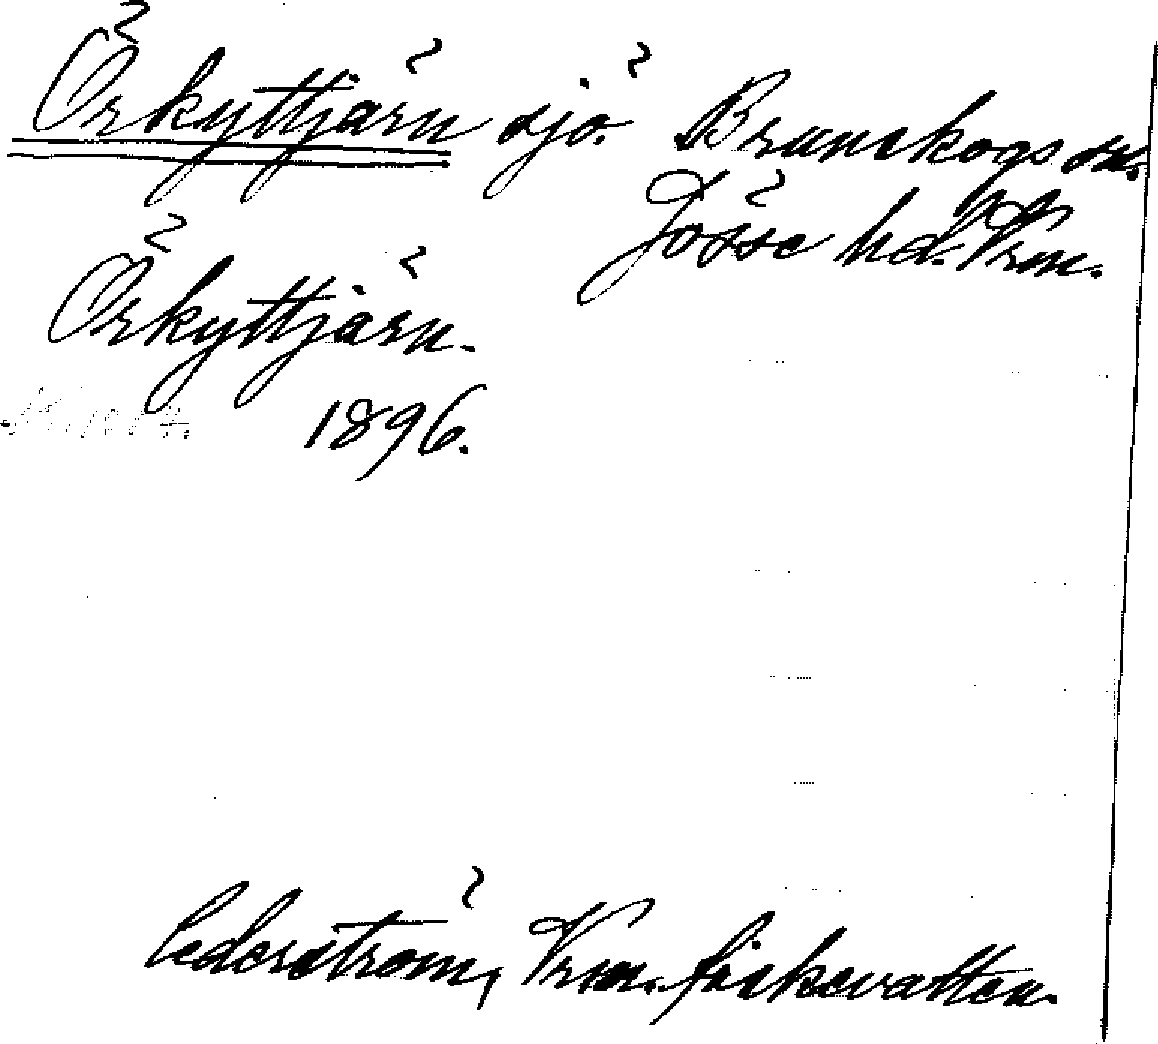 Örkyttjärn sjö. Brunskogs sn.
Jösse hd. Vrm.
Örkyttjärn.
1896.
Cederström, Vrm. fiskevatten.